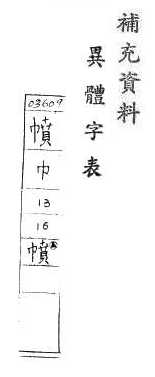 補充資料
異體字表
03609
幩
巾
13
16
幩